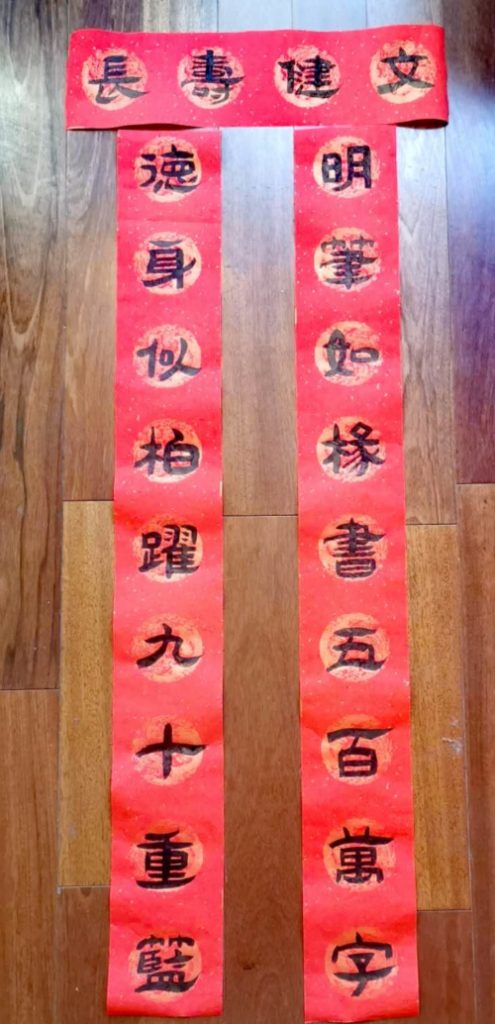 文健壽長
明筆如椽書五百萬字
徳身似柏躍九十重籃